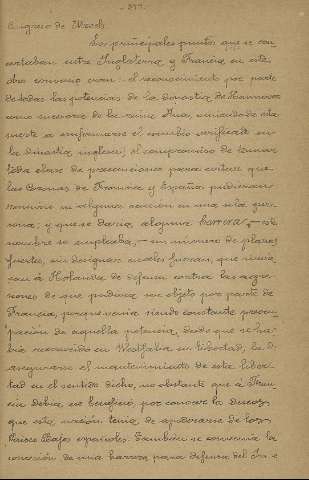 - 277.-
Congreso de Utrech.
Los principales puntos que se con
certaban entre Inglaterra y Francia en este
otro convenio eran: el reconocimiento por parte
de todas las potencias de la dinastía de Hannover
como sucesora de la reina Ana,
el cambio verificado en
la dinastía inglesa; el compromiso de tomar
toda clase de precauciones para evitar que
las coronas de Francia y España pudieran
reunirse en ninguna ocasión en una sola per-
sona; y que se daría alguna barrera, - este
nombre se empleaba, - un número de plazas
fuertes, sin designar cuales fueran, que sirvie
ran á Holanda de defensa contra las agre-
siones de que pudiera ser objeto por parte de
Francia, porque venía siendo constante preocu
pación de aquella potencia, desde que se ha-
bía reconocido en Westfalia su libertad, la de
asegurarse el mantenimiento de esta liber-
tad en el sentido dicho, no obstante que á Fran
cia debía ese beneficio, por conocer los deseos
que esta nación tenía de apoderarse de los
Países Bajos españoles. También se convenía la
concesión de una barrera para defensa del